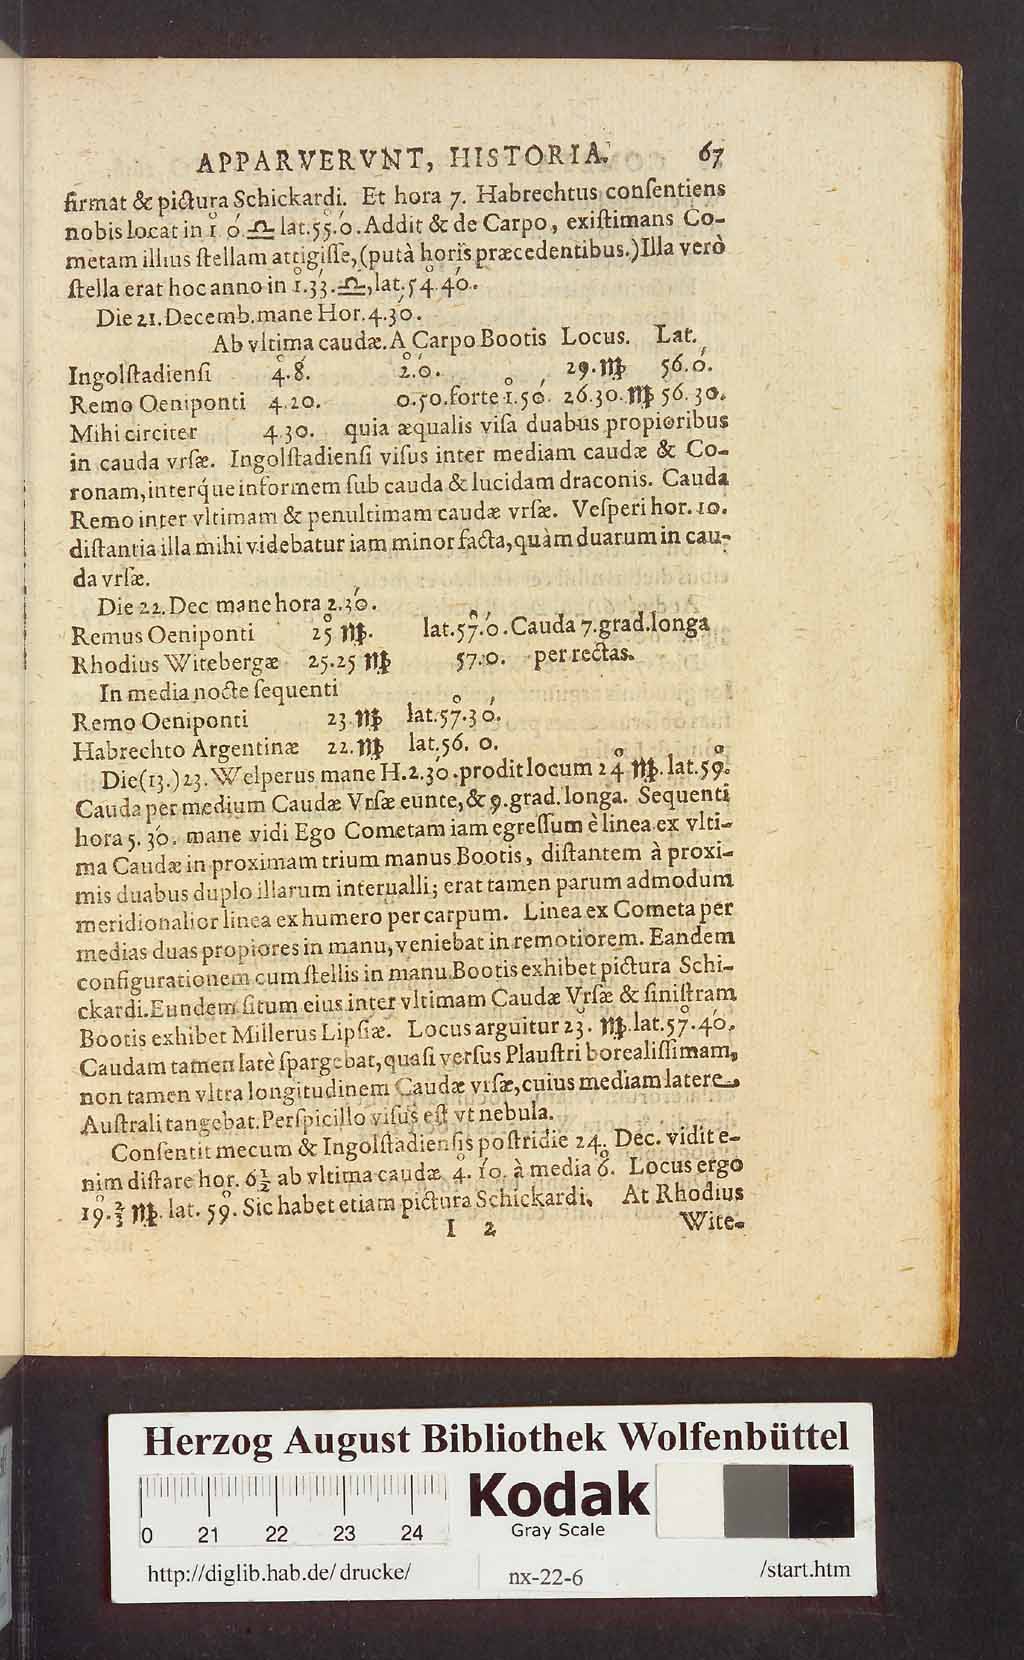 APPARVERVNT, HISTORIA. 67
firmat & pictura Schickardi. Et hora 7. Habrechtus conſentiens
nobis locat in 1°. 0′. ♎ lat. 55°. 0′. Addit & de Carpo, exiſtimans Co-
metam illius ſtellam attigiſſe, (putà horis præcedentibus.) Illa verò
ſtella erat hoc anno in 1°. 33′. ♎, lat. 54°. 40′.
Die 21. Decemb. mane Hor. 4. 30′.
Ab vltima caudæ. A Carpo Bootis Locus. Lat.
Ingolſtadienſi 4°. 8′. 2°. 0′. 29. ♍ 56. 0′.
Remo Oeniponti 4. 20. 0. 50. forte 1°. 50′. 26. 30. ♍ 56. 30.
Mihi circiter 4. 30. quia æqualis viſa duabus propioribus
in cauda vrſæ. Ingolſtadienſi viſus inter mediam caudæ & Co-
ronam, interq́ue informem ſub cauda & lucidam draconis. Cauda
Remo inter vltimam & penultimam caudæ vrſæ. Veſperi hor. 10.
diſtantia illa mihi videbatur iam minor facta, quàm duarum in cau-
da vrſæ.
Die 22. Dec mane hora 2. 30′.
Remus Oeniponti 25° ♍. lat. 57°. 0′. Cauda 7. grad. longa
Rhodius Witebergæ 25. 25 ♍ 57. 0. per rectas.
In media nocte ſequenti
Remo Oeniponti 23. ♍ lat. 57°. 30′.
Habrechto Argentinæ 22. ♍ lat. 56. 0.
Die (13.) 23. Welperus mane H. 2. 30′. prodit locum 24° ♍. lat. 59°.
Cauda per medium Caudæ Vrſæ eunte, & 9. grad. longa. Sequenti
hora 5. 30′. mane vidi Ego Cometam iam egreſſum è linea ex vlti-
ma Caudæ in proximam trium manus Bootis, diſtantem à proxi-
mis duabus duplo illarum interualli; erat tamen parum admodum
meridionalior linea ex humero per carpum. Linea ex Cometa per
medias duas propiores in manu, veniebat in remotiorem. Eandem
configurationem cum ſtellis in manu Bootis exhibet pictura Schi-
ckardi. Eundem ſitum eius inter vltimam Caudæ Vrſæ & ſiniſtram
Bootis exhibet Millerus Lipſiæ. Locus arguitur 23°. ♍. lat. 57°. 40′.
Caudam tamen latè ſpargebat, quaſi verſus Plauſtri borealiſſimam,
non tamen vltra longitudinem Caudæ vrſæ, cuius mediam latere
Auſtrali tangebat. Perſpicillo viſus eſt vt nebula.
Conſentit mecum & Ingolſtadienſis poſtridie 24. Dec. vidit e-
nim diſtare hor. 6½ ab vltima caudæ 4°. 10′. à media 6°. Locus ergo
19°. ⅔ ♍. lat. 59°. Sic habet etiam pictura Schickardi. At Rhodius
I 2 Wite-
Herzog August Bibliothek Wolfenbüttel
Kodak
Gray Scale
0 21 22 23 24
http://diglib.hab.de/drucke/ nx-22-6 /start.htm